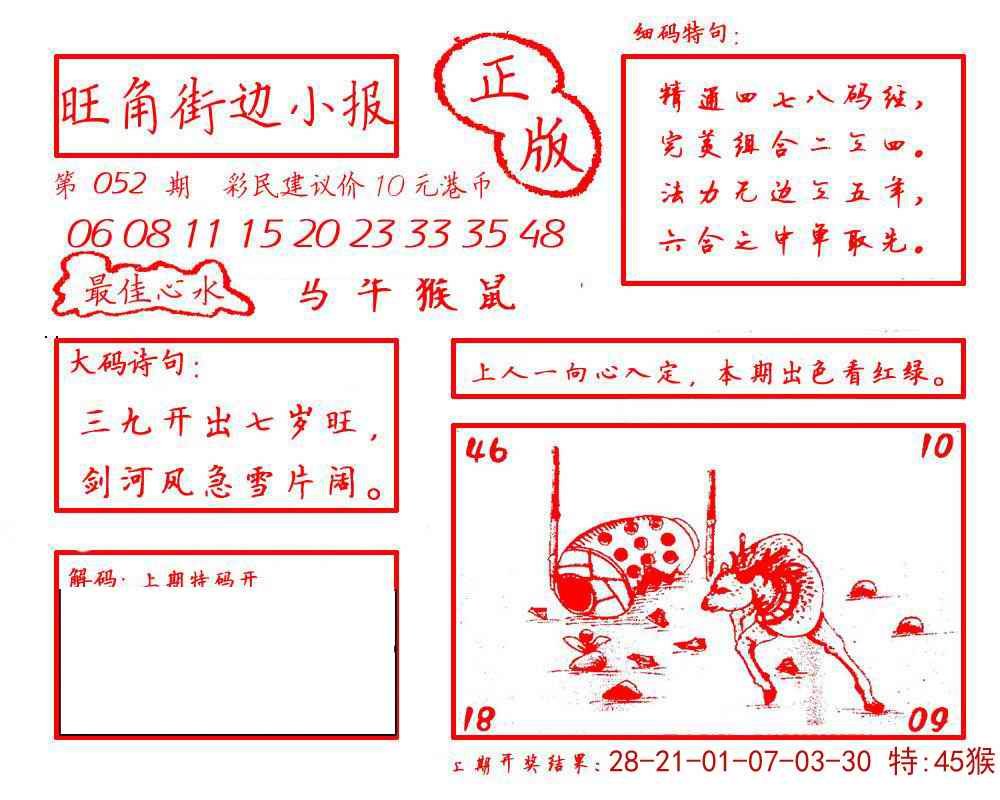 旺角街边小报
正版
第 052 期 彩民建议价10元港币
06 08 11 15 20 23 33 35 48
最佳心水
马 牛 猴 鼠
细码特句:
精通四七八码经,
完美组合二三四。
法力无边三五年,
六合之中单取先。
大码诗句:
三九开出七岁旺,
剑河风急雪片阔。
解码·上期特码开
上人一向心入定,本期出色看红绿。
46
10
18
09
上期开奖结果:28-21-01-07-03-30 特:45猴